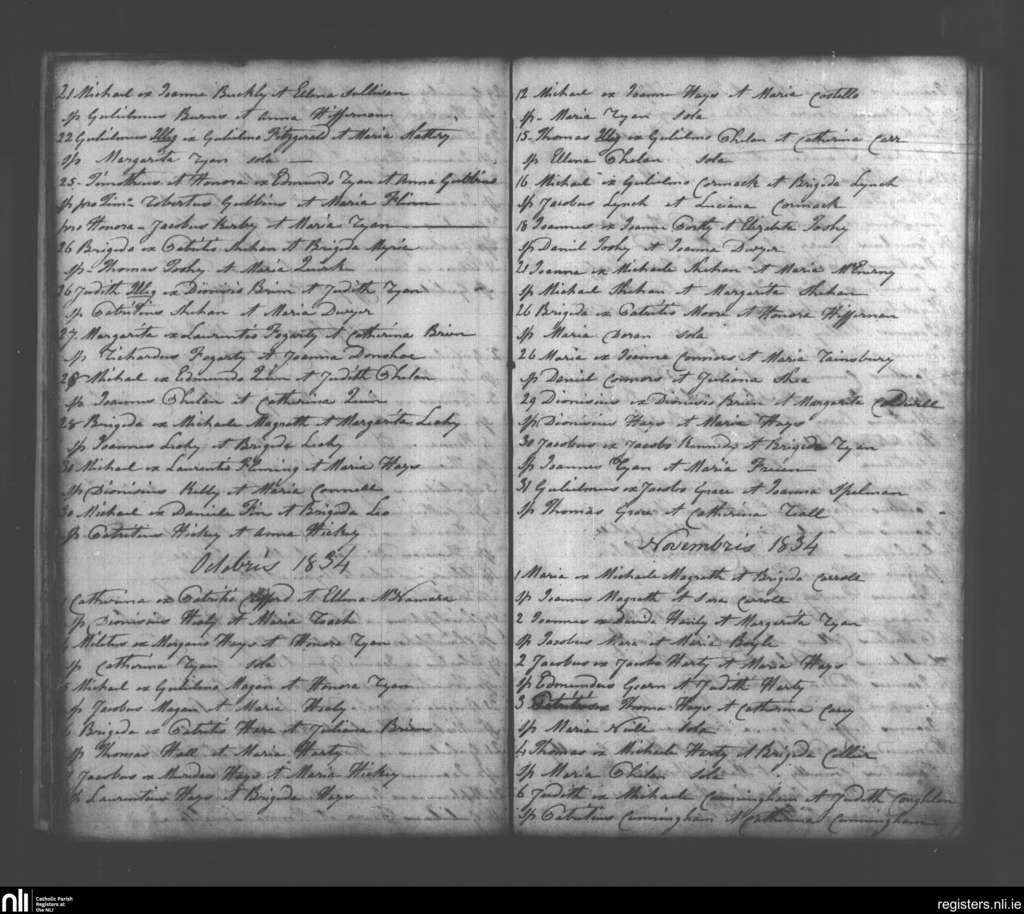 21 Michael ex Joanne Buckly et Ellena Sullivan
sp Gulielmus Burns et Anna Heffernan
22 Gulielmus Illeg ex Gulielmo Fitzgerald et Maria Slattery
sp Margarita Ryan sola
25 - Timotheus et Honora ex Edmundo Ryan et Anna Gubbins
sp pro Tim. Robertus Gubbins et Maria Flinn
pro Honora - Jacobus Kerby et Maria Ryan
26 Brigida ex Patritio Shehan et Brigida
sp - Thomas Toohy et Maria Quirk
26 Judith Illeg ex Dionisio Brien et Judith Ryan
sp Patritius Shehan et Maria Dwyer
27 Margarita ex Laurentio Fogarty et Catherina Brien
sp Richardus Fogarty et Joanna Donohoe
28 Michael ex Edmundo Quin et Judith Phelan
sp Joannes Phelan et Catherina Quin
28 Brigida ex Michaele Magrath et Margarita Leahy
sp Joannes Leahy et Brigida Leahy
30 Michael ex Laurentio Fleming et Maria Hays
sp Dionisius Kelly et Maria Connell
30 Michael ex Daniele et Brigida Leo
sp Patritius Hickey et Anna Hickey
Octobris 1834
Catherina ex Patritio et Ellena McNamara
sp Dionisius Healy et Maria Roach
ex et Honora Ryan
sp Catherina Ryan sola
5 Michael ex Gulielmo Magan et Honora Ryan
sp Jacobus Magan et Maria Healy
6 Brigida ex Patritio Hare et Juliana Brien
sp Thomas Hall et Maria Harty
Jacobus ex Hays et Maria Hickey
sp Laurentius Hays et Brigida Hays
12 Michael ex Joanne Hays et Maria Costello
sp - Maria Ryan sola
15 - Thomas Illeg ex Gulielmo Phelan et Catherina Carr
sp Ellena Phelan sola
16 Michael ex Gulielmo Cormack et Brigida Lynch
sp Jacobus Lynch et Luciana Cormack
18 Joannes ex Joanne et Elizabeth Toohy
sp Daniel Toohy et Joanna Dwyer
21 Joanna ex Michaele Shehan et Maria McEnerny
sp Michael Shehan et Margarita Shehan
26 Brigida ex Patritio Moore et Honora Heffernan
sp Maria Doran sola
26 Maria ex Joanne Connors et Maria Rainsbury
sp Daniel Connors et Juliana Shea
29 Dionisius ex Dionisio Brien et Margarita
sp Dionisius Hays et Maria Hays
30 Jacobus ex Jacobo Kennedy et Brigida Ryan
sp Joannes Ryan et Maria
31 Gulielmus ex Jacobo Grace et Joanna Spelman
sp Thomas Grace et Catherina
Novembris 1834
1 Maria ex Michaele Magrath et Brigida Carroll
sp Joannes Magrath et Sara Carroll
2 Joannes ex Hanly et Margarita Ryan
sp Jacobus Mara et Maria Boyle
2 Jacobus ex Jacobo Harty et Maria Hays
sp Edmundus et Judith Harty
3 Patritius ex Thoma Hays et Catherina Casey
sp Maria sola
4 Thomas ex Michaele Harty et Brigida Collier
sp Maria Phelan sola
6 Judith ex Michaele Cunningham et Judith Coughlan
sp Patritius Cunningham et Catherina Cunningham
nli
Catholic Parish
Registers at
the NLI
registers.nli.ie